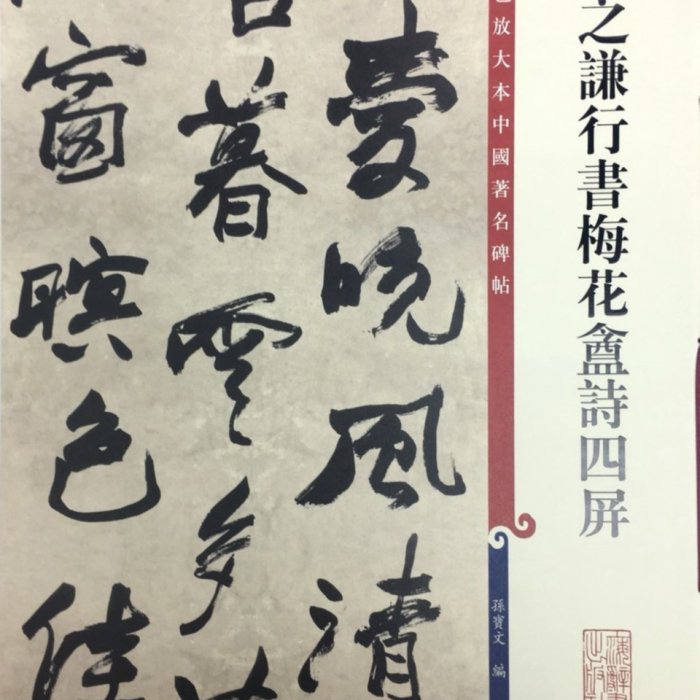 之謙行書梅花盦詩四屏
放大本中國著名碑帖
孫寶文 編
愛晚風清
暮雲多
窗暝色佳